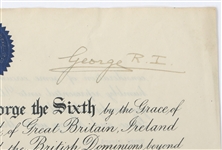 George R.I.
George the Sixth by the Grace of
of Great Britain, Ireland
the British Dominions beyond